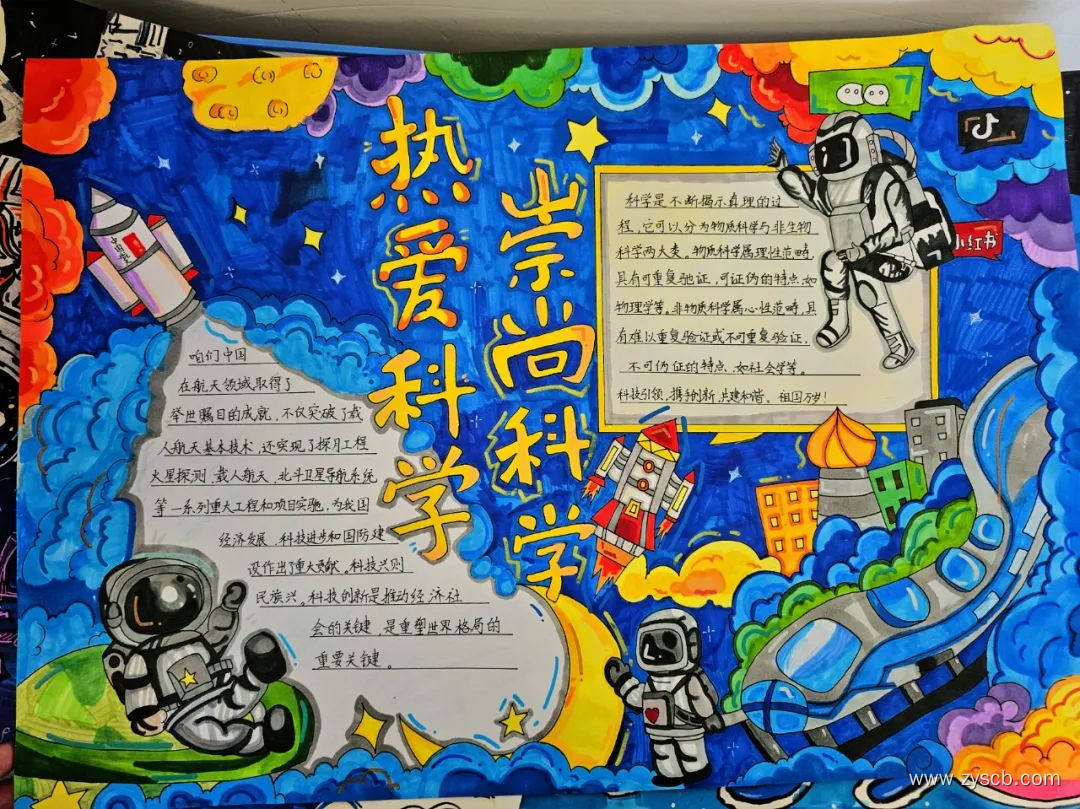 热爱科学
崇尚科学
科学是不断揭示真理的过
程，它可以分为物质科学与非生物
科学两大类。物质科学属理性范畴，
具有可重复验证，可证伪的特点，如
物理学等。非物质科学属心性范畴，具
有难以重复验证或不可重复验证，
不可伪证的特点，如社会学等。
科技引领，携手创新，共建和谐，祖国万岁！
小红书
中国航
咱们中国
在航天领域取得了
举世瞩目的成就，不仅突破了载
人航天基本技术，还实现了探月工程
火星探测、载人航天、北斗卫星导航系统
等一系列重大工程和项目实施，为我国
经济发展、科技进步和国防建
设作出了重大贡献。科技兴则
民族兴。科技创新是推动经济社
会的关键，是重塑世界格局的
重要关键。
www.zyscb.com